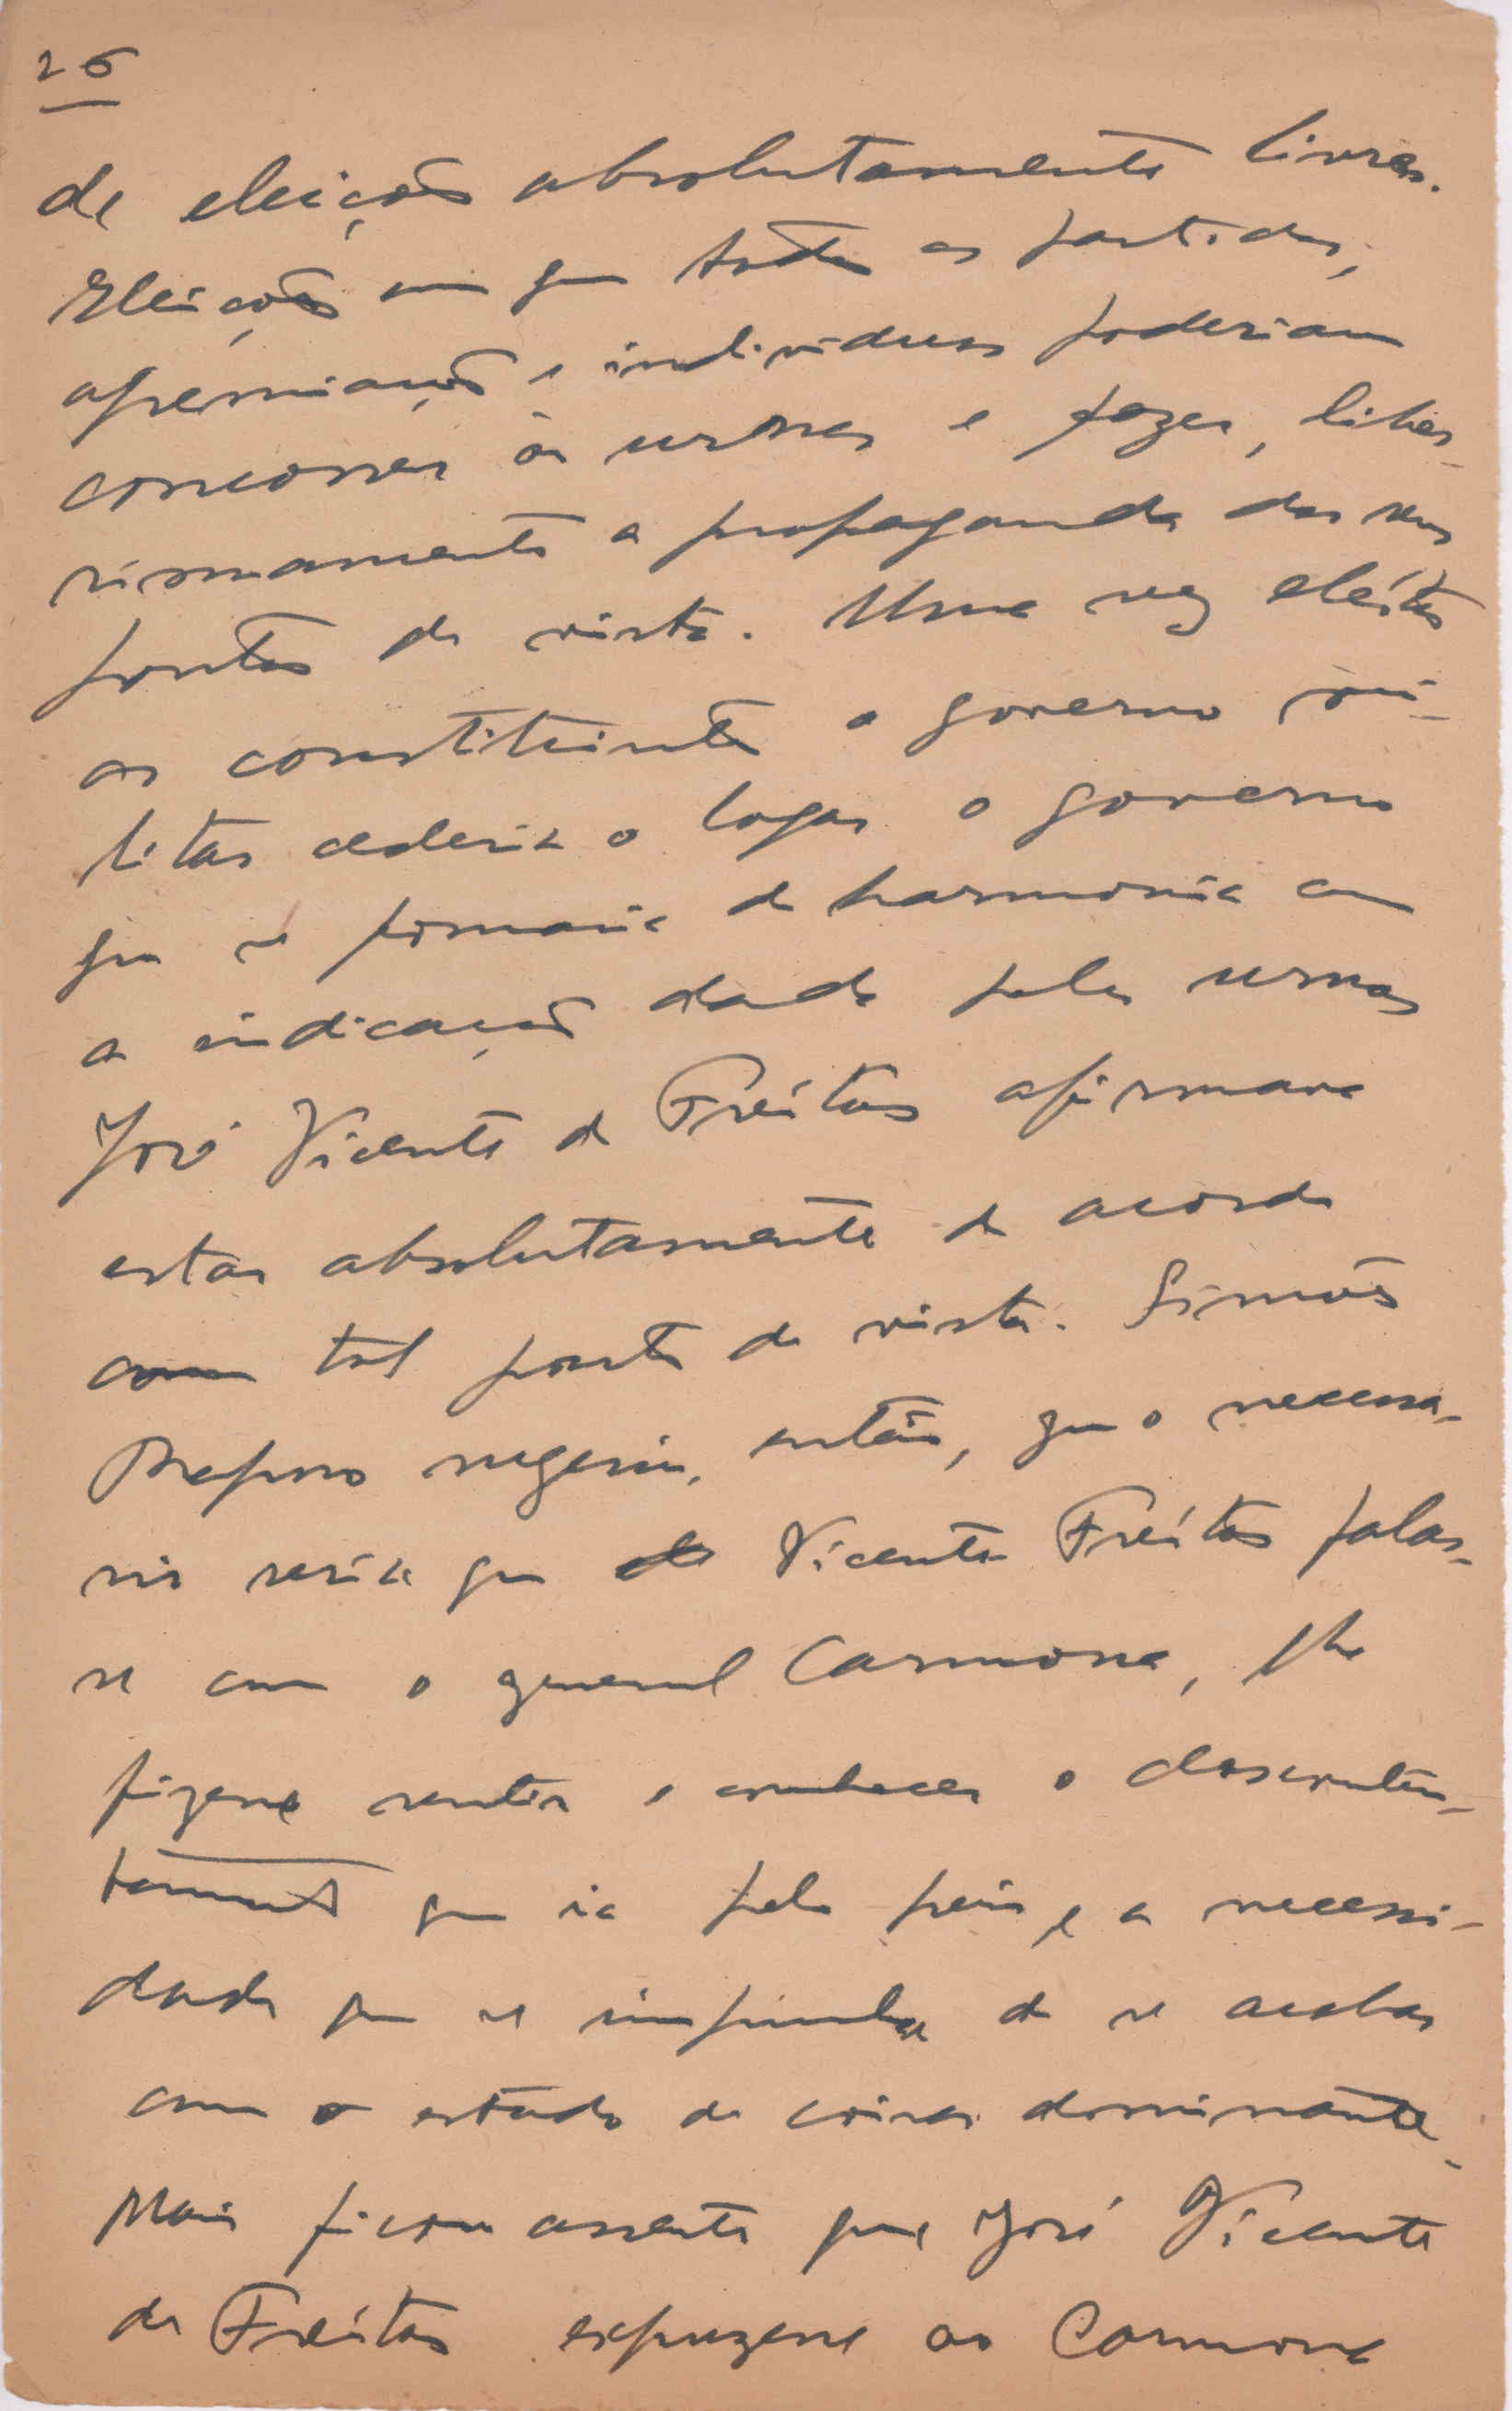 26
de eleições absolutamente livres.
Eleições em que todos os partidos,
agremiações e individuos poderiam
concorrer ás urnas e fazer, liber-
rimamente a propaganda dos seus
pontos de vista. Uma vez eleitos
os constituintes o governo mi-
litar cederia o logar o governo
que se formaria de harmonia com
a indicação dada pelas urnas
José Vicente de Freitas afirmava
estar absolutamente de acordo
com tal ponto de vista. Simões
Raposo sugeriu, então, que o necessa-
rio seria que Vicente Freitas falas-
se com o general Carmona, lhe
fizesse sentir e conhecer o desconten-
tamento que ia pelo país e a necessi-
dade que se impunha de se acabar
com o estado de coisas dominante.
Mais ficou assente que José Vicente
de Freitas expuzesse ao Carmona